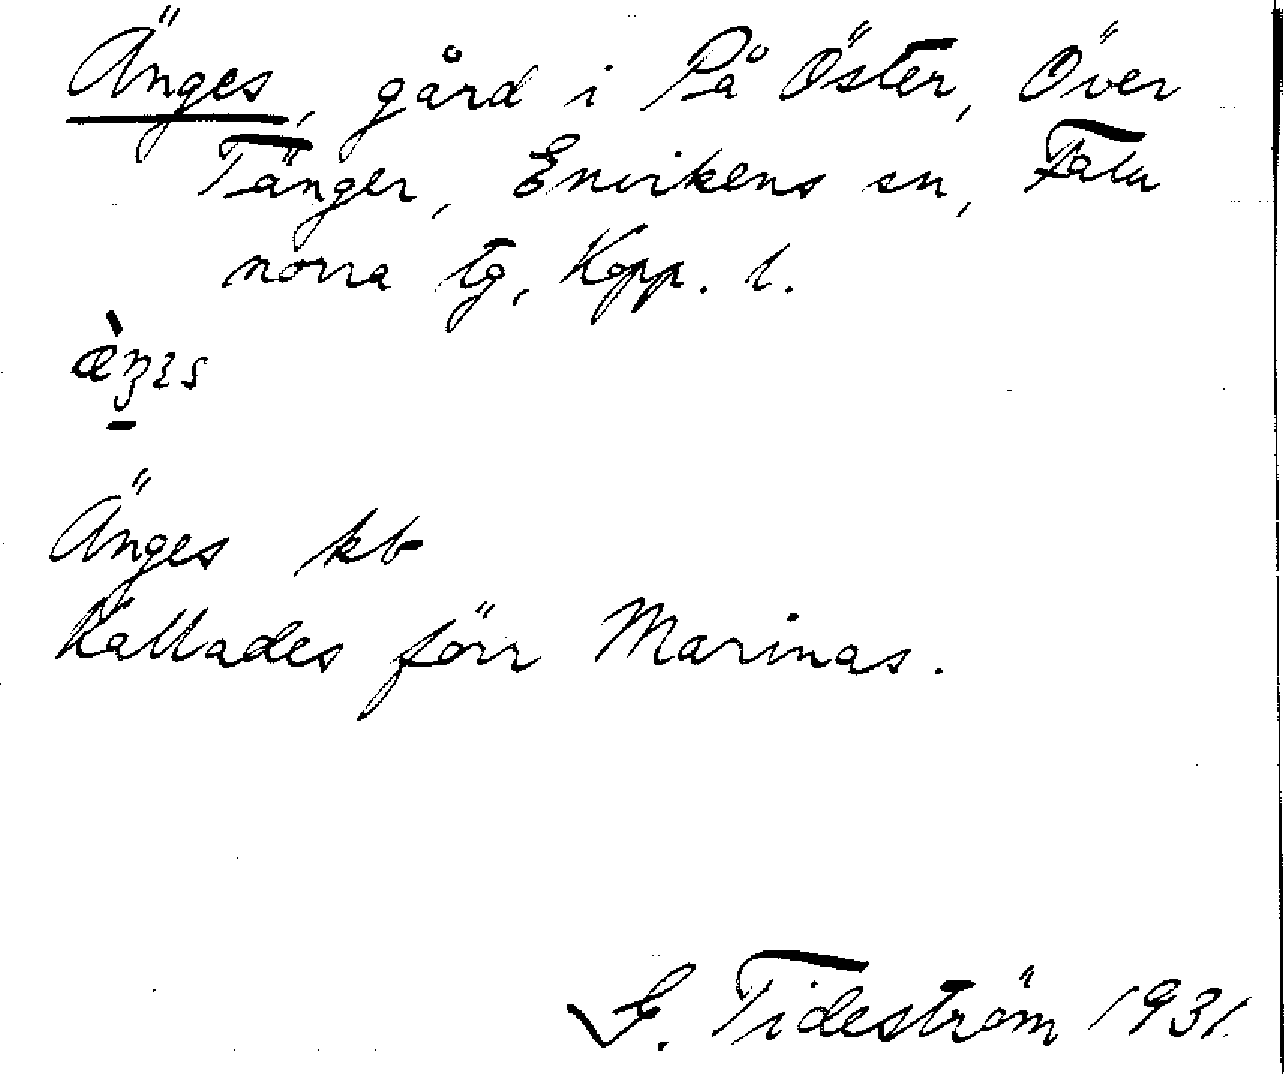 Änges, gård i På Öster, Över
Tänger, Envikens sn, Falu
norra tg, Kopp. l.
Änges kb
Kallades förr Marinas.
G. Tideström 1931.